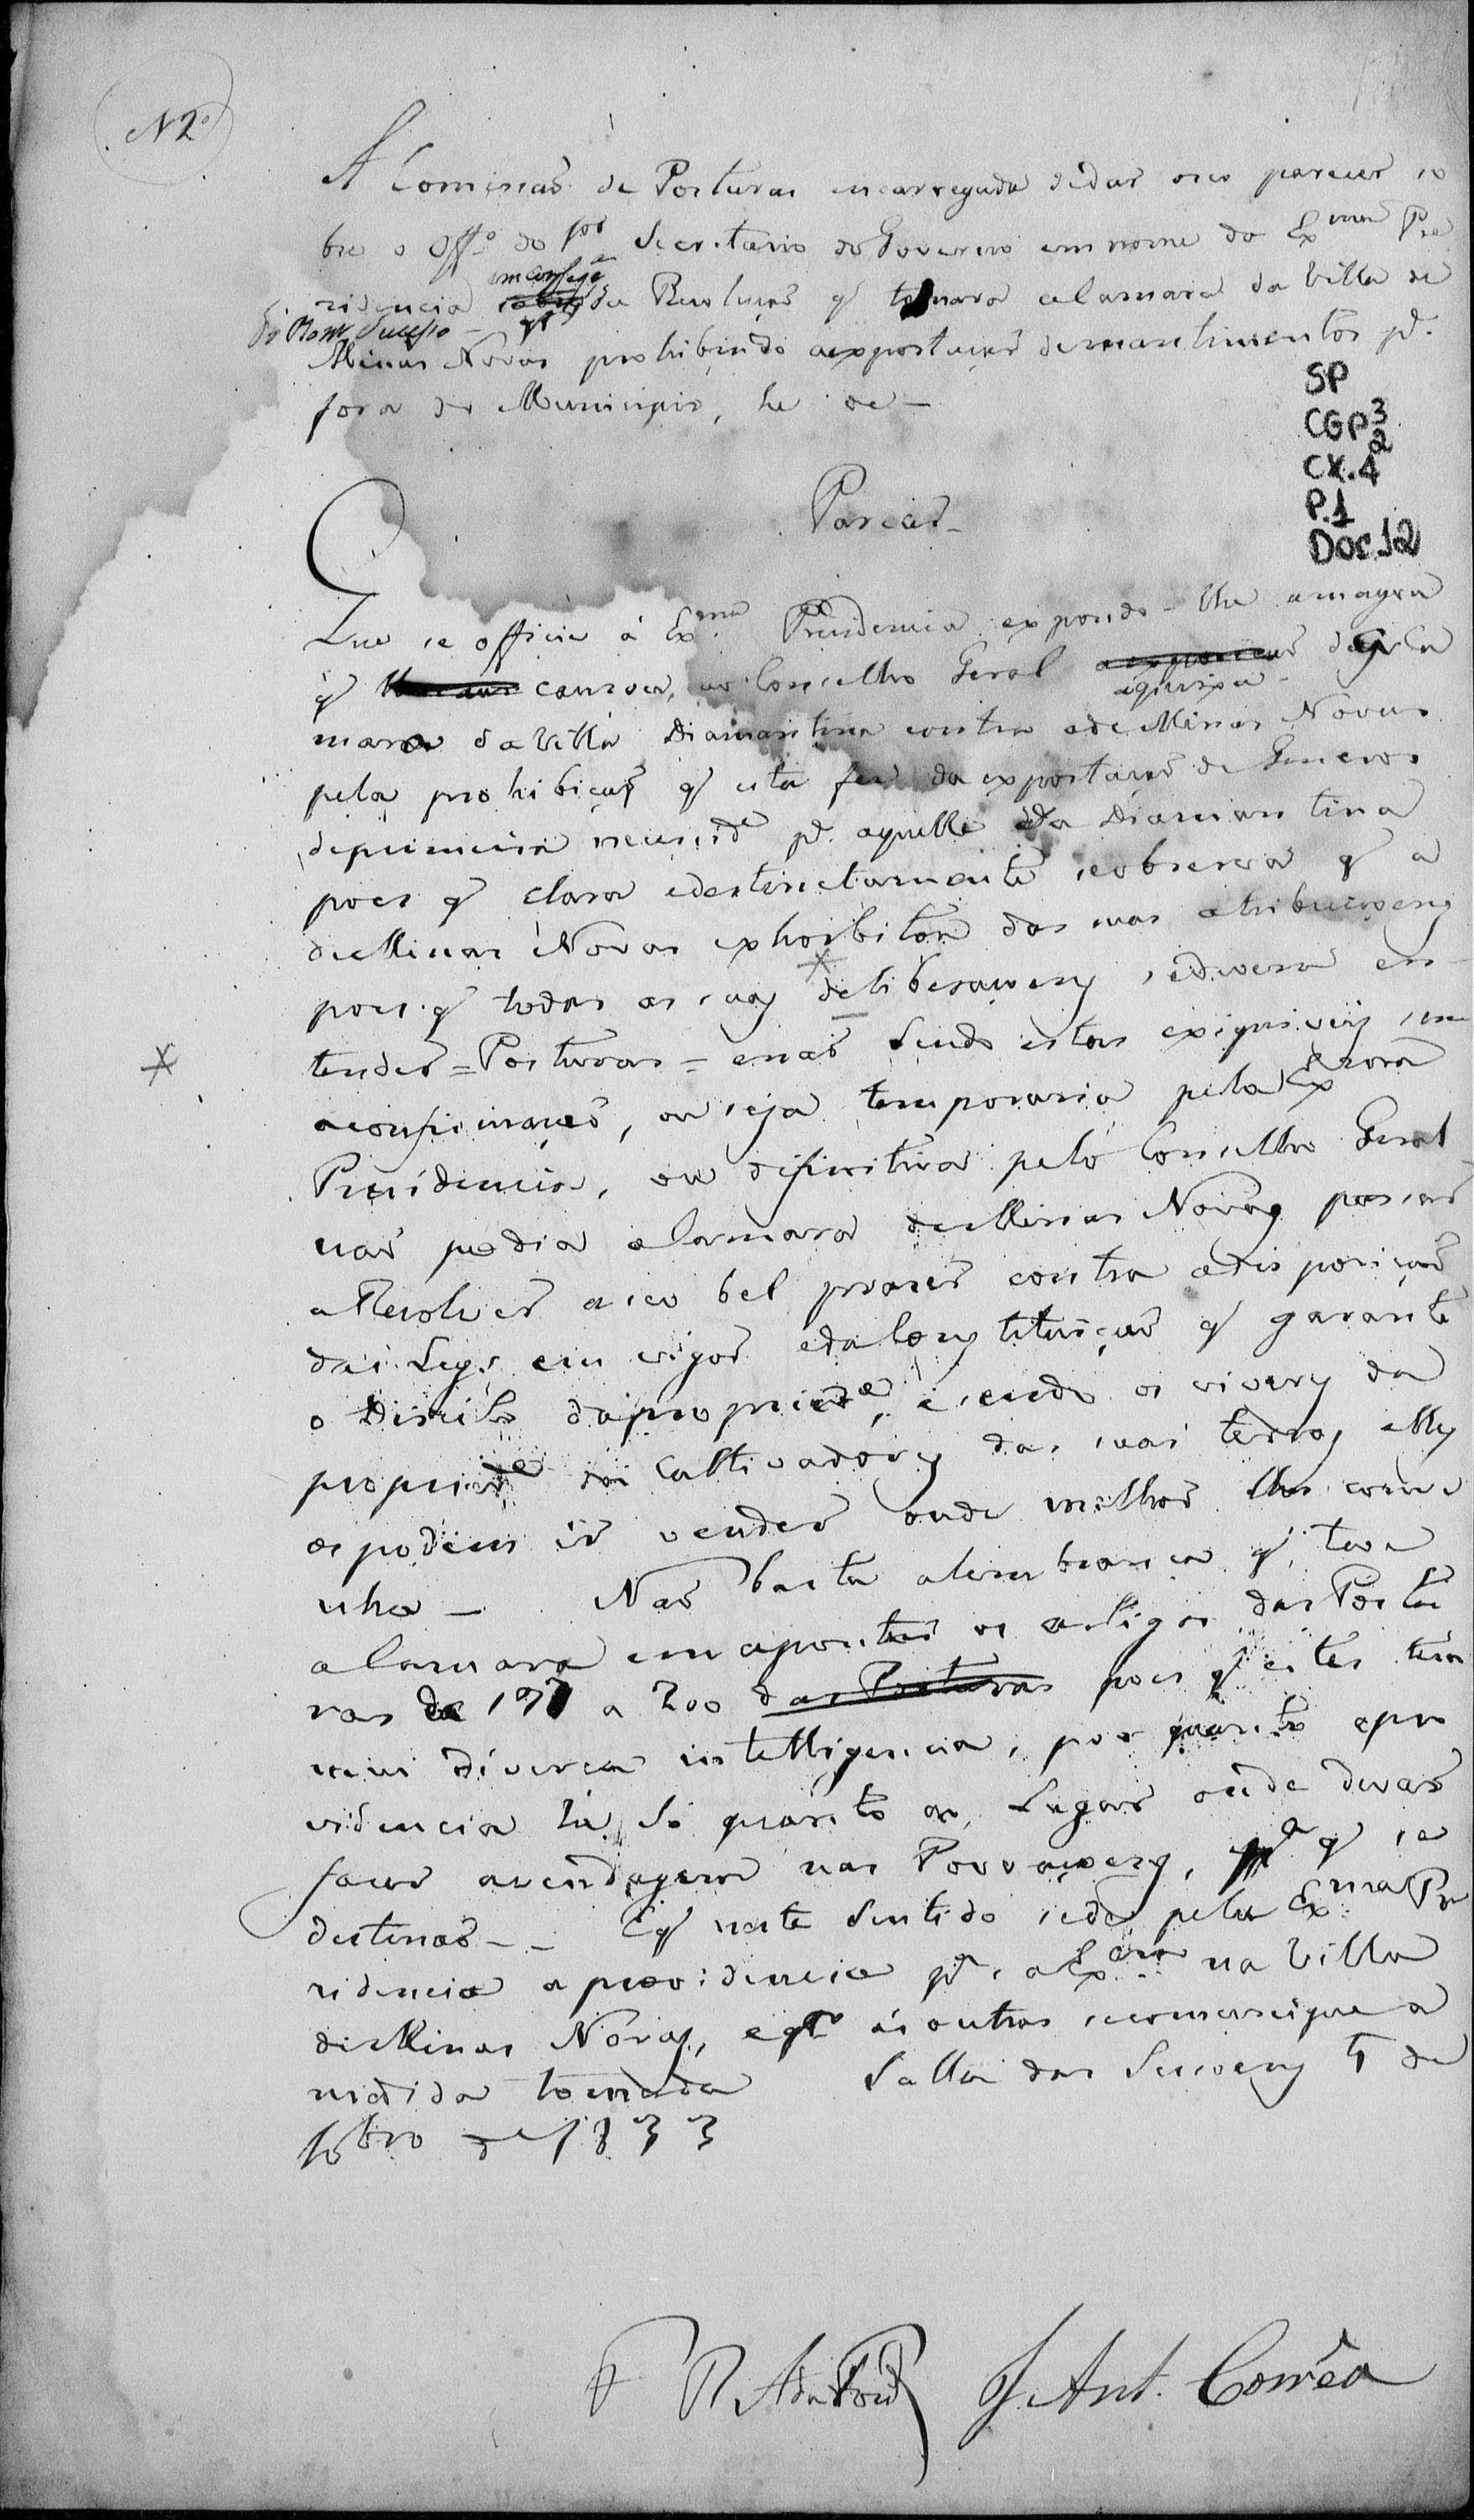 N 2º
A Comissaõ de Posturas encarregada dedar oseo parecer so
bre o Offº do Snr Secretario do Governo em nome da Exma Pre
zidencia da Resoluçaõ q' tomara aCamara da Villa de
do Bom Sucesso
Minas Novas prohibindo aexportaçaõ demantimentos pª
fora do Municipio, he de —
SP
CGP 3
2
CX. 4
P. 1
DOC. 12
Parecer —
Que se officie á Exma Prezidencia expondo-lhe amagoa
q' cauzou, ao Conselho Geral aqueixa daCa
mara da Villa Diamantina contra ade Minas Novas
pela prohibiçaõ q' esta fez da exportaçaõ de Generos
deprimeira necesside pª aquelle da Diamantina
pois q' clara edestinctamente seobserva q' a
deMinas Novas exhorbitou das suas atribuiçoens
pois q' todas as suas deliberaçoens sedevem en-
tender = Posturas = enaõ sendo estas exiquiveis sem
aconfirmaçaõ, ou seja temporaria pela Exma
Prezidencia, ou difinitiva pelo Conselho Geral
naõ podia aCamara deMinas Novas passar
aRezolver aseo bel prazer contra adispoziçaõ
das Leys em vigor edaConstituiçaõ q' garante
o Direito dapropriede, e sendo os viveres da
propriede dos Cultivadores das suas terras elles
os podem ir vender onde melhor lhes conve
nha — Naõ basta alembrança q' teve
aCamara em apontar os artigos das Postu
ras de 197 a 200 das Posturas pois q' estes tem
mui diversa intelligencia, por quanto apro
videncia hé só quanto ao Lugar onde devaõ
fazer avendagem nas Povoaçoens, pª q' se
destinaõ — Eq' neste Sentido sedê pela Exma Pre
zidencia a providencia pª a na Villa
deMinas Novas, e ás outras secomunique a
medida tomada Salla das Sessoens 5 de
Febro de 1833
J Ant. Corrêa